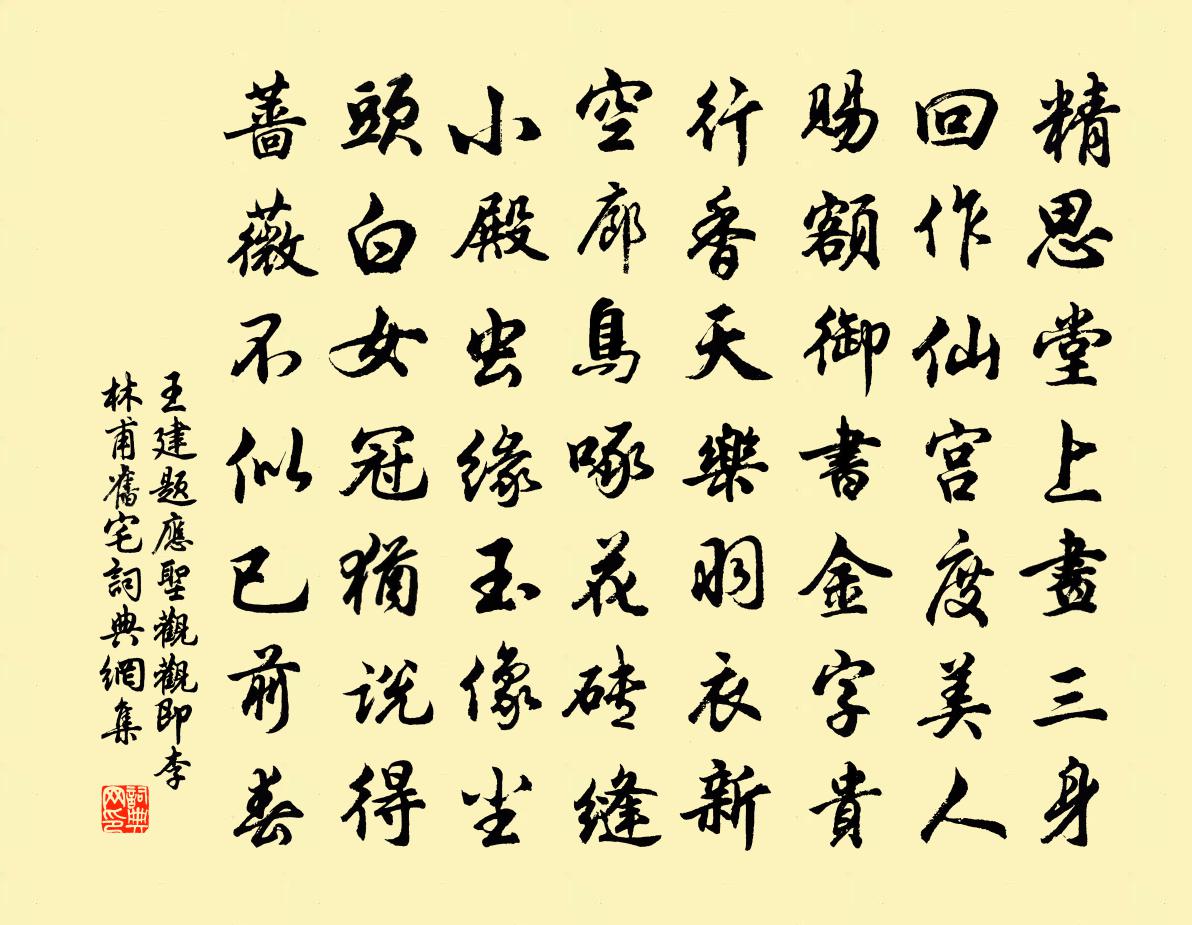 精思堂上畫三身
回作仙宮度美人
賜額御書金字貴
行香天樂羽衣新
空廊鳥啄花磚縫
小殿虫緣玉像尘
頭白女冠猶说得
薔薇不似已前春
王建題應聖觀觀即李
林甫舊宅詞典網集
詞典
网印